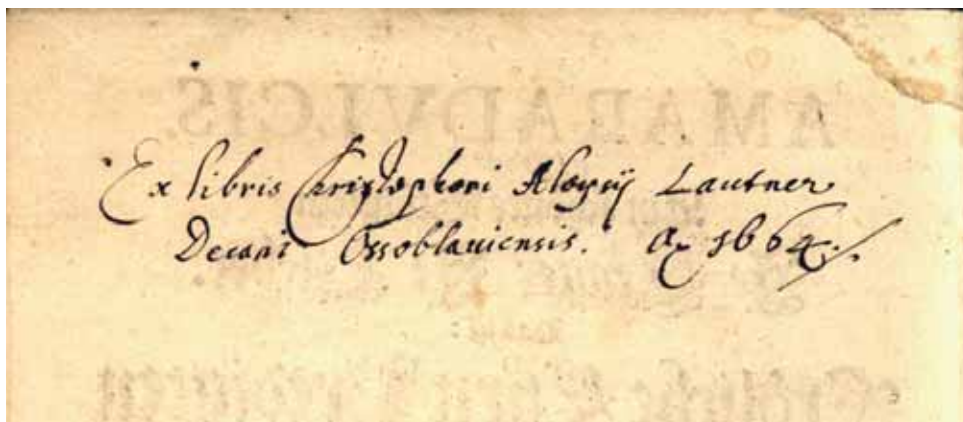 Ex libris Christophori Aloysij Lautner
Decani Ossoblauiensis. Aº 1664